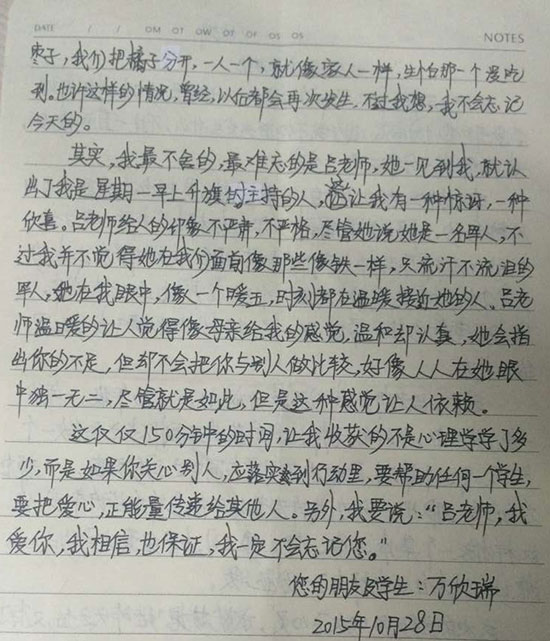 DATE / / MO TU WE TH FR SA SU NOTES
枣子,我们把橘子分开,一人一个,就像家人一样,生怕那一个没吃
到。也许这样的情况,曾经,以后都会再次发生,不过我想,我不会忘记
今天的。
其实,我最不舍的,最难忘的是吕老师,她一见到我,就认
出了我是星期一早上升旗的主持的人,这让我有一种惊讶,一种
欣喜。吕老师给人的印像不严肃,不严格,尽管她说她是一名军人,不
过我并不觉得她在我们面前像那些像铁一样,只流汗不流泪的
军人,她在我眼中,像一个暖五,时刻都在温暖接近她的人。吕老
师温暖的让人觉得像母亲给我的感觉,温和却认真,她会指
出你的不足,但却不会把你与别人做比较,好像人人在她眼
中独一无二,尽管就是如此,但是这种感觉让人依赖。
这仅仅150分钟中的时间,让我收获的不是心理学学了多
少,而是如果你关心别人,应落实到行动里,要帮助任何一个学生,
要把爱心,正能量传递给其他人。另外,我要说:“吕老师,我
爱你,我相信,也保证,我一定不会忘记您。”
您的朋友及学生:万欣瑞
2015年10月28日